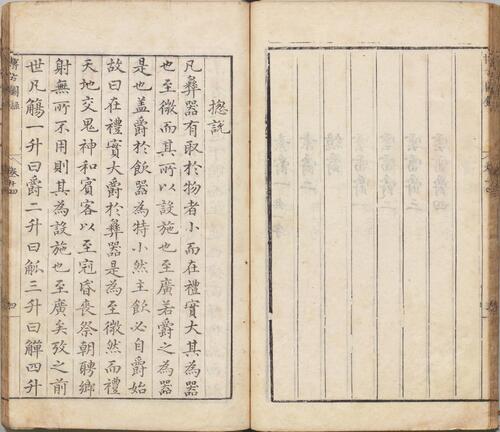 總說
凡彝器有取於物者小而在禮實大其為器
也至微而其所以設施也至廣若爵之為器
是也盖爵於飲器為特小然主飲必自爵始
故曰在禮實大爵於彝器是為至微然而禮
天地交鬼神和賓客以至冠昏喪祭朝聘鄉
射無所不用則其為設施也至廣矣攷之前
世凡觴一升曰爵二升曰觚三升曰觶四升
博古圖錄
卷十四
四